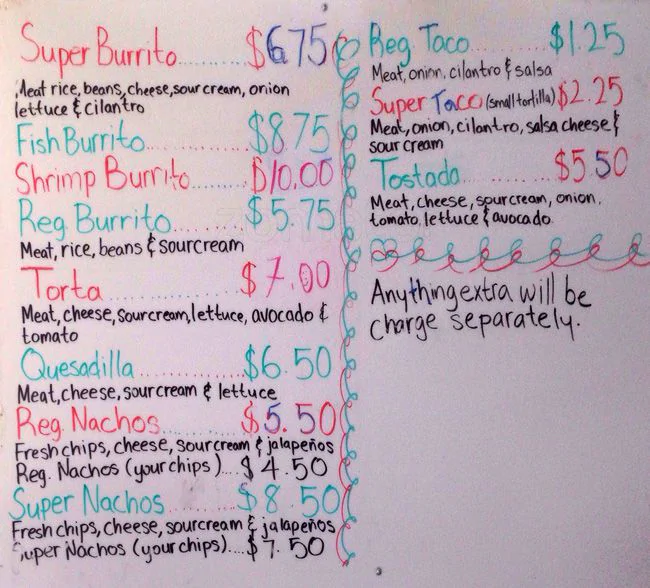 Super Burrito......$6.75
Meat rice, beans, cheese, sour cream, onion
lettuce & cilantro
Fish Burrito..........$8.75
Shrimp Burrito........$10.00
Reg. Burrito..........$5.75
Meat, rice, beans & sourcream
Torta................$7.00
Meat, cheese, sourcream, lettuce, avocado &
tomato
Quesadilla...........$6.50
Meat, cheese, sour cream & lettuce
Reg. Nachos.........$5.50
Fresh chips, cheese, sour cream & jalapeños
Reg. Nachos (your chips)...$4.50
Super Nachos........$8.50
Fresh chips, cheese, sourcream & jalapeños
Super Nachos (your chips)....$7.50
Reg. Taco...........$1.25
Meat, onion, cilantro & salsa
Super Taco (small tortilla) $2.25
Meat, onion, cilantro, salsa cheese &
sour cream
Tostada............$5.50
Meat, cheese, sourcream, onion,
tomato, lettuce & avocado.
Anything extra will be
charge separately.